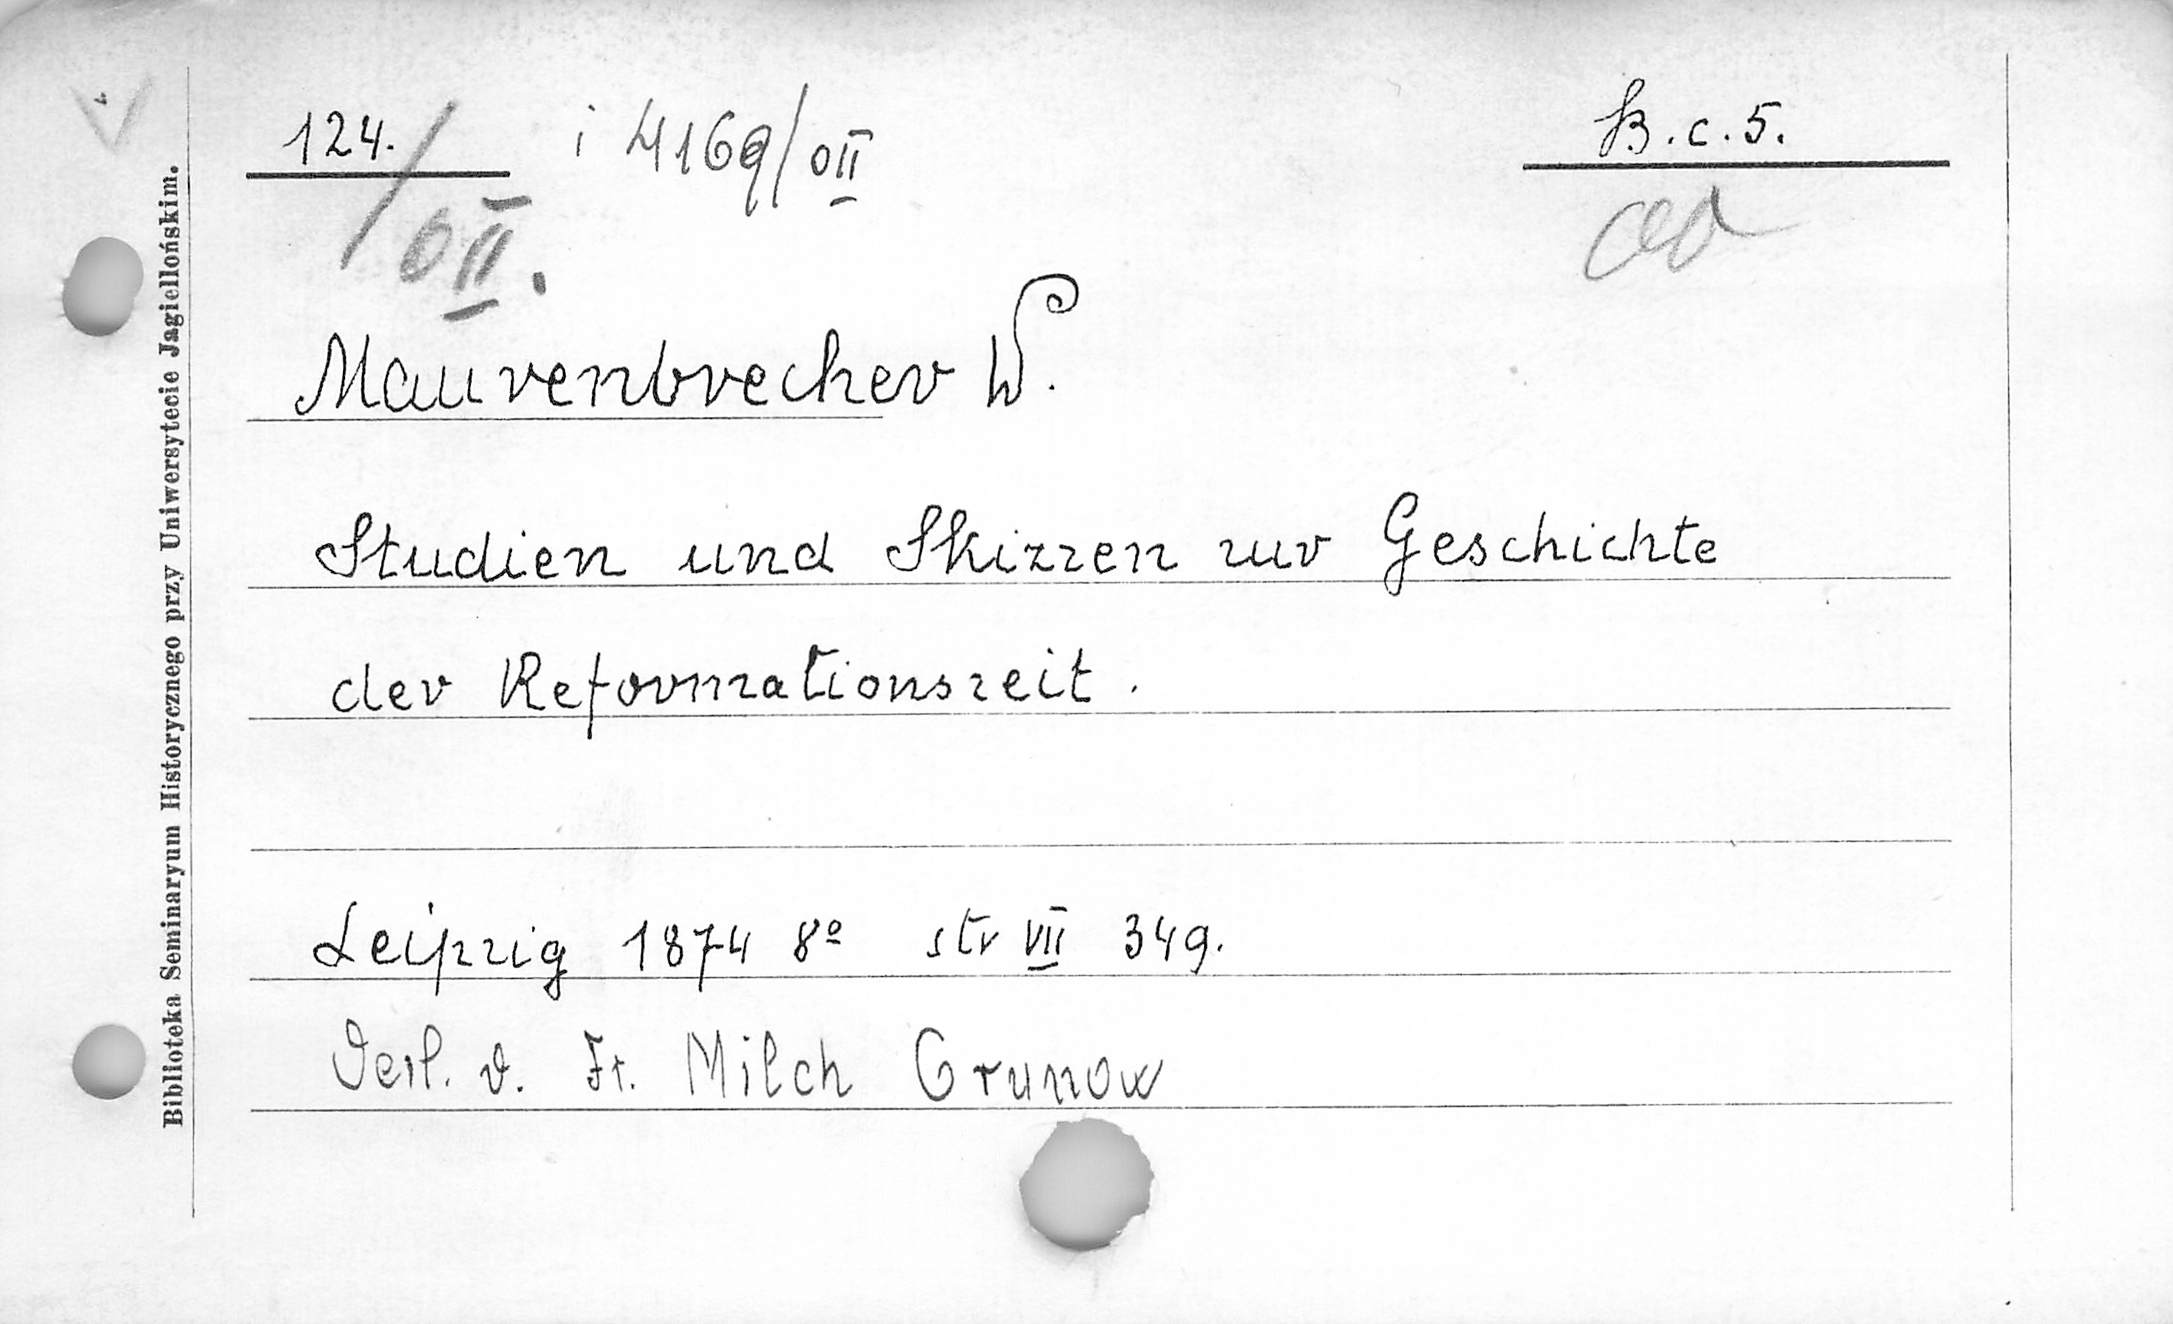 124./oII. i 4169/oII B.c.5.
Maurenbrecher W.
Studien und Skizzen zur Geschichte
der Reformationszeit.
Leipzig 1874 8º str VII 349.
Verl. v. Fr. Milch Grunow
Biblioteka Seminaryum Historycznego przy Uniwersytecie Jagiellońskim.